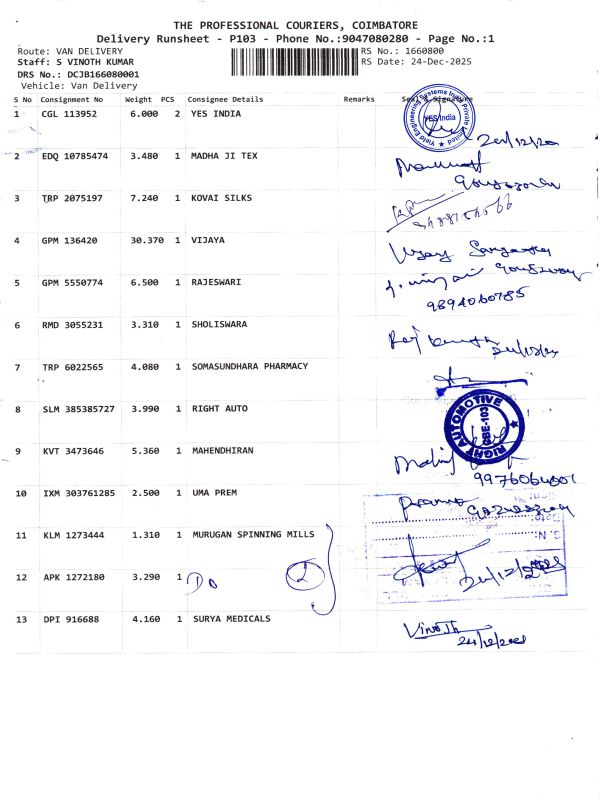 THE PROFESSIONAL COURIERS, COIMBATORE
Delivery Runsheet - P103 - Phone No.:9047080280 - Page No.:1
Route: VAN DELIVERY
RS No.: 1660800
Staff: S VINOTH KUMAR
RS Date: 24-Dec-2025
DRS No.: DCJB166080001
Vehicle: Van Delivery
S No Consignment No Weight PCS Consignee Details Remarks Seal & Signature
1 CGL 113952 6.000 2 YES INDIA
Yield Engineering Systems India Private Limited
YES India
2 EDQ 10785474 3.480 1 MADHA JI TEX
3 TRP 2075197 7.240 1 KOVAI SILKS
4 GPM 136420 30.370 1 VIJAYA
5 GPM 5550774 6.500 1 RAJESWARI
9894060785
6 RMD 3055231 3.310 1 SHOLISWARA
7 TRP 6022565 4.080 1 SOMASUNDHARA PHARMACY
8 SLM 385385727 3.990 1 RIGHT AUTO
RIGHT AUTOMOTIVE
CBE-103
9 KVT 3473646 5.360 1 MAHENDHIRAN
10 IXM 303761285 2.500 1 UMA PREM
11 KLM 1273444 1.310 1 MURUGAN SPINNING MILLS
12 APK 1272180 3.290 1 Do 2
24/12/2025
13 DPI 916688 4.160 1 SURYA MEDICALS
Vinoth
24/12/2025